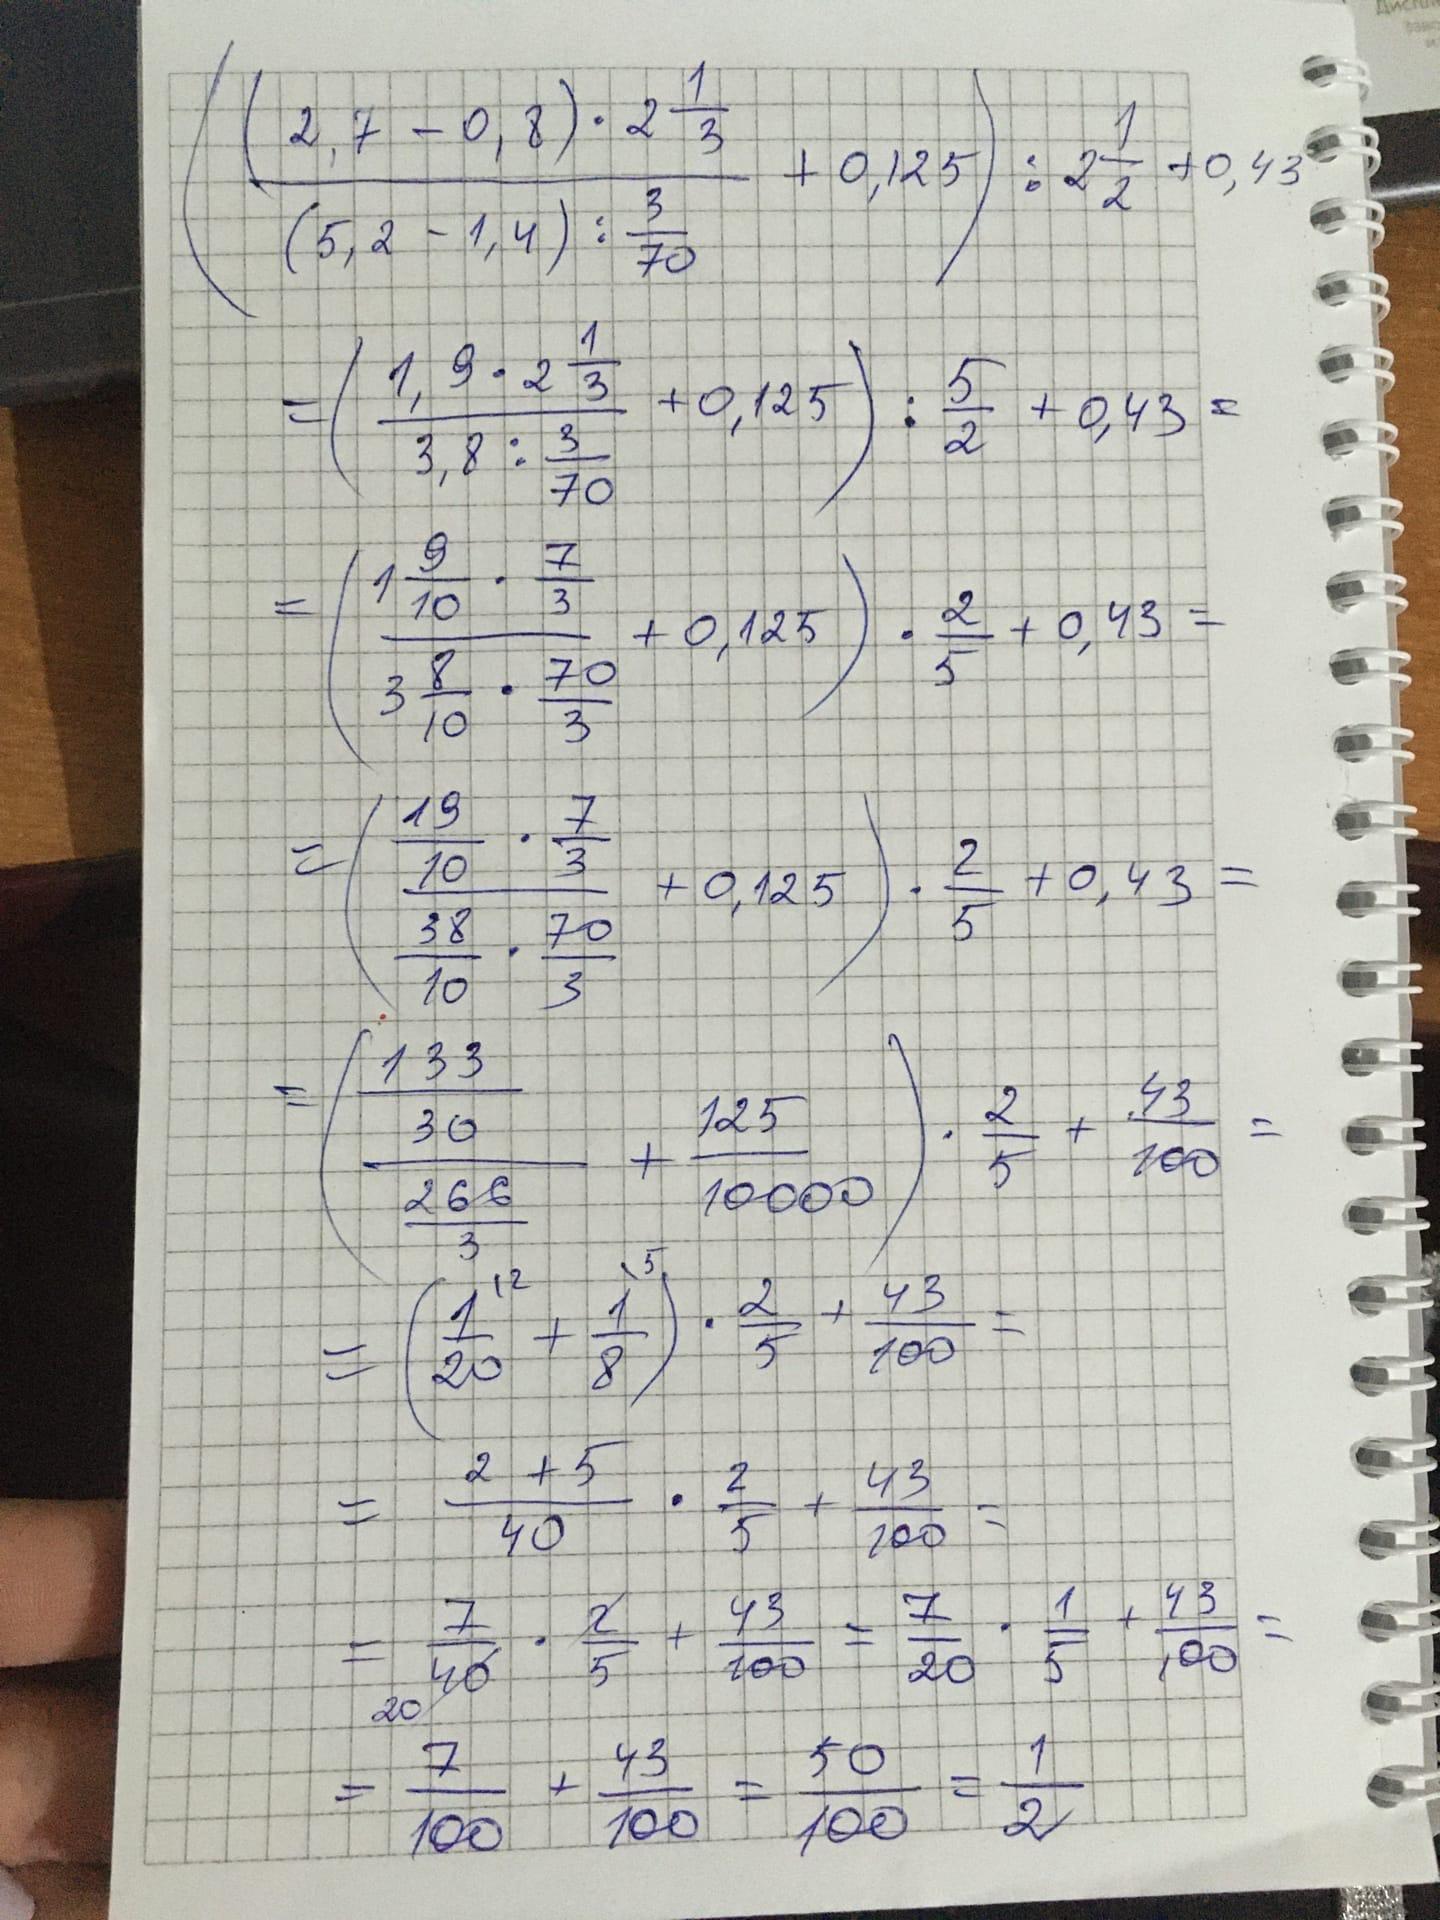 ((2,7 - 0,8) · 2 1/3 / (5,2 - 1,4) : 3/70 + 0,125) : 2 1/2 + 0,43
= (1,9 · 2 1/3 / 3,8 : 3/70 + 0,125) : 5/2 + 0,43 =
= (1 9/10 · 7/3 / 3 8/10 · 70/3 + 0,125) · 2/5 + 0,43 =
= (19/10 · 7/3 / 38/10 · 70/3 + 0,125) · 2/5 + 0,43 =
= (133/30 / 266/3 + 125/10000) · 2/5 + 43/100 =
= (1/20 \2 + 1/8 \5) · 2/5 + 43/100 =
= 2 + 5/40 · 2/5 + 43/100 =
= 7/40 · 2/5 + 43/100 = 7/20 · 1/5 + 43/100 =
20
= 7/100 + 43/100 = 50/100 = 1/2